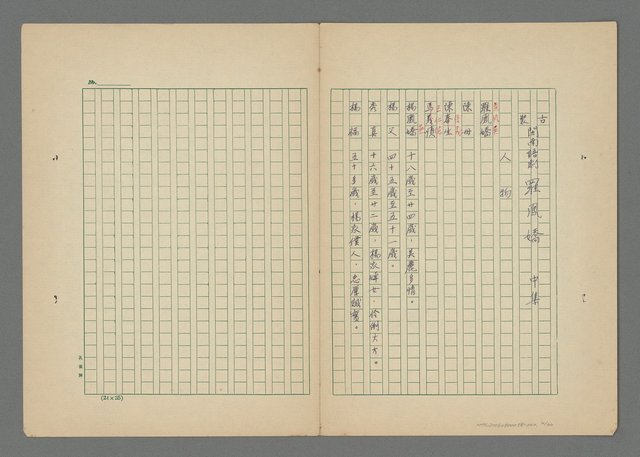 古裝
閩南語劇 羅鳳嬌 中集
人物
羅鳳嬌
陳母
陳春生
馬義俊
楊鳳嬌 十八歲至廿四歲，美麗多情。
楊父 四十五歲至五十一歲。
秀真 十六歲至廿二歲，楊家婢女，伶俐大方。
楊福 五十多歲，楊家僕人，忠厚誠實。
No.
(24×25)